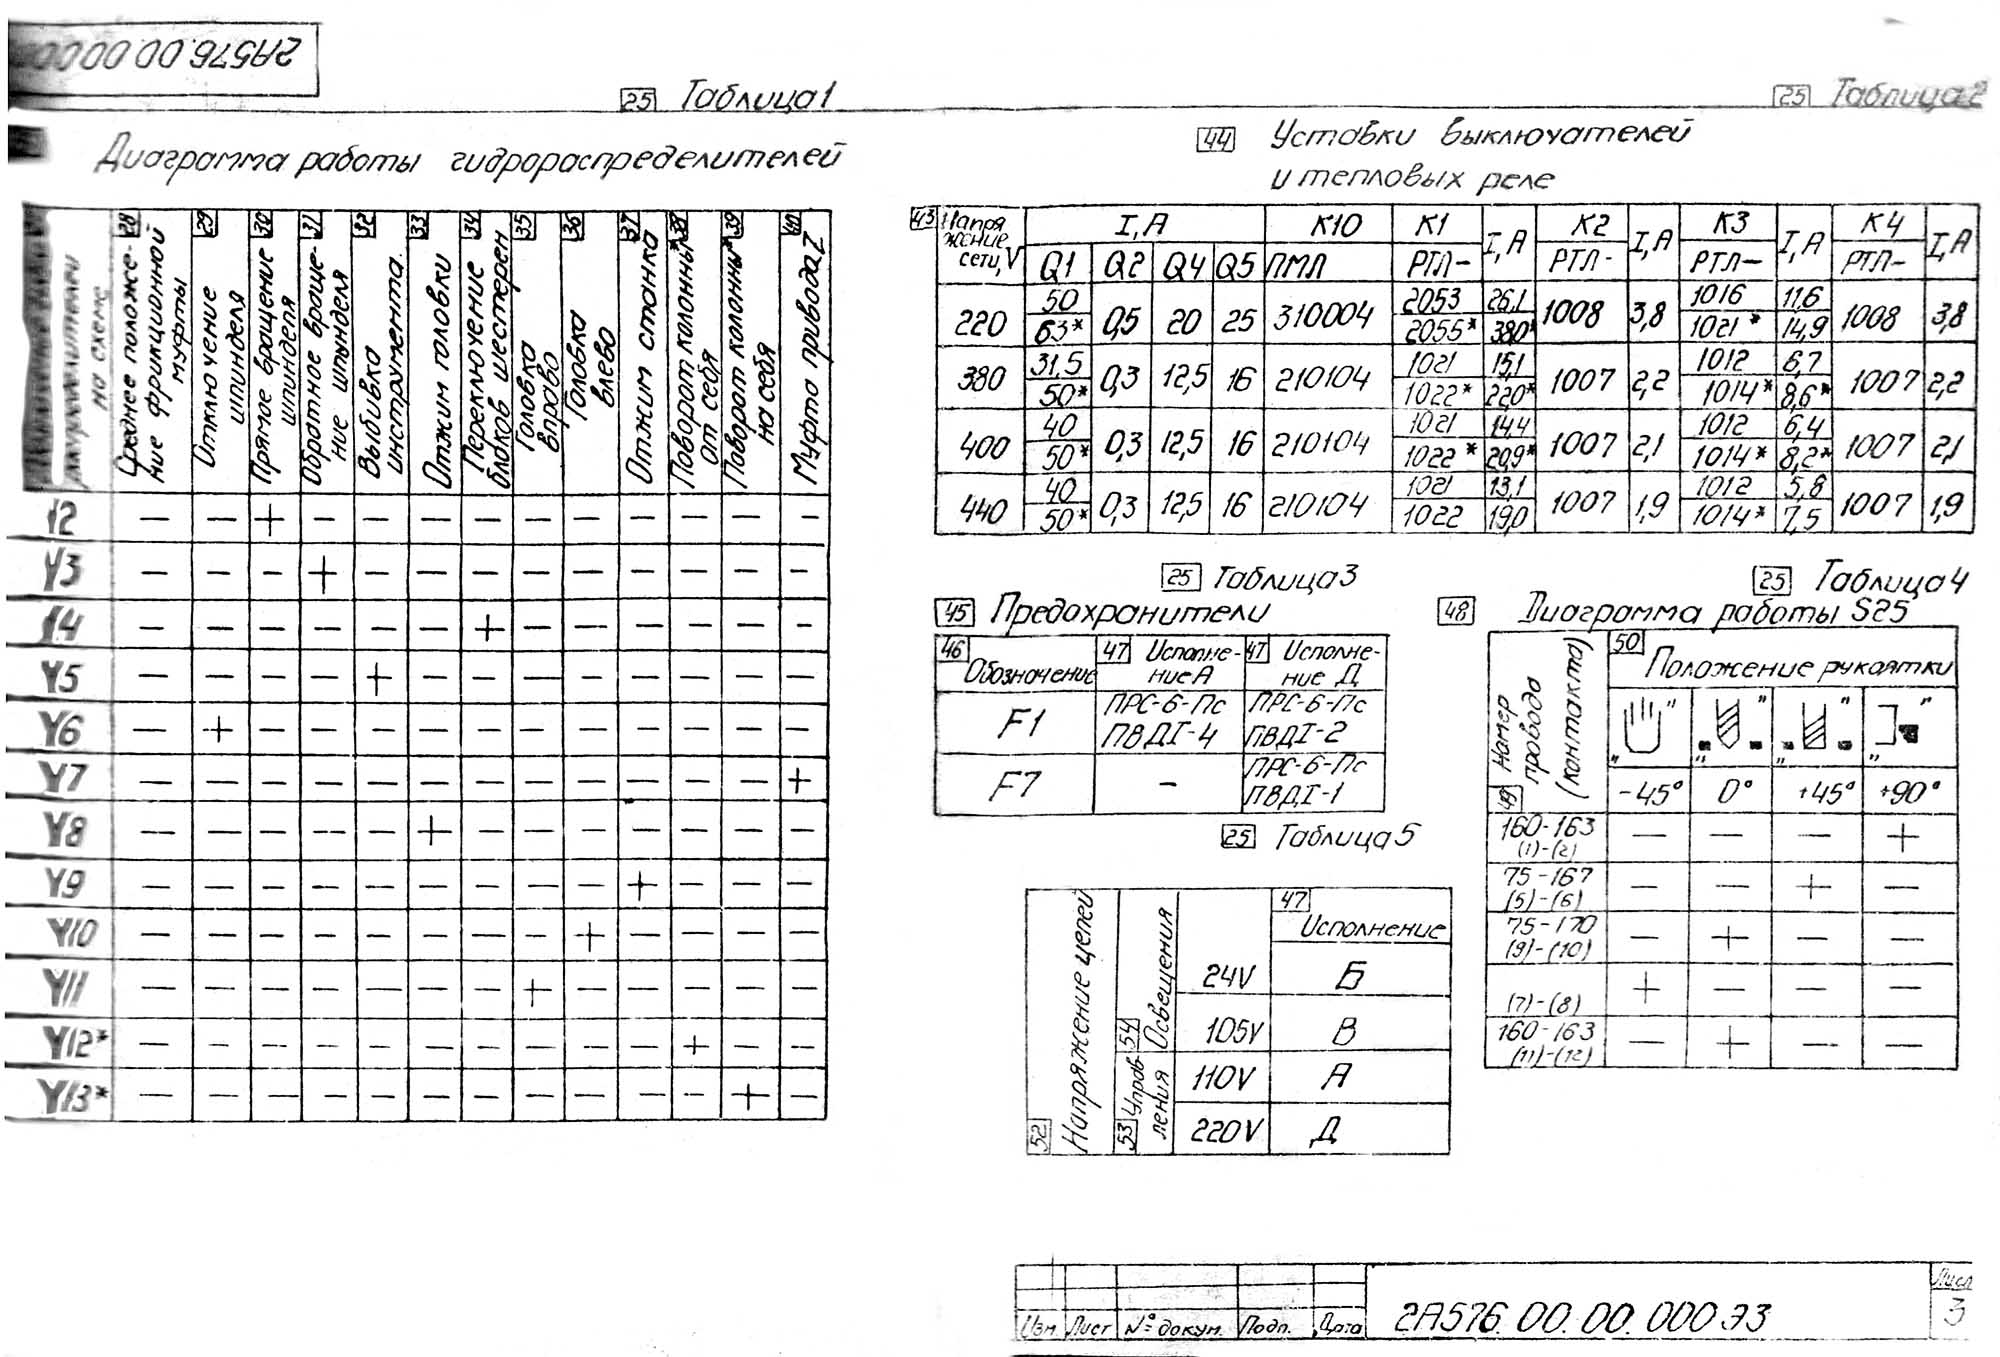 2А576.00.00.000
25 Таблица 1
Диаграмма работы гидрораспределителей
на схеме
28 Среднее положе-
ние фрикционной
муфты
29 Отключение
шпинделя
30 Прямое вращение
шпинделя
31 Обратное враще-
ние шпинделя
32 Выбивка
инструмента.
33 Отжим головки
34 Переключение
блоков шестерен
35 Головка
вправо
36 Головка
влево
37 Отжим станка
38 Поворот колонны*
от себя
39 Поворот колонны*
на себя
40 Муфта привода, Z
Y2 — — + — — — — — — — — — —
Y3 — — — + — — — — — — — — —
Y4 — — — — — — + — — — — — —
Y5 — — — — + — — — — — — — —
Y6 — + — — — — — — — — — — —
Y7 — — — — — — — — — — — — +
Y8 — — — — — + — — — — — — —
Y9 — — — — — — — — — + — — —
Y10 — — — — — — — — + — — — —
Y11 — — — — — — — + — — — — —
Y12* — — — — — — — — — — + — —
Y13* — — — — — — — — — — — + —
25 Таблица 2
44 Уставки выключателей
и тепловых реле
43 Напря
жение
сети, V
I, A K10 K1 I, A K2 I, A K3 I, A K4 I, A
Q1 Q2 Q4 Q5 ПМЛ РТЛ- РТЛ- РТЛ- РТЛ-
50 2053 26,1 1016 11,6
220 0,5 20 25 310004 1008 3,8 1008 3,8
63* 2055* 380* 1021* 14,9
31,5 1021 15,1 1012 6,7
380 0,3 12,5 16 210104 1007 2,2 1007 2,2
50* 1022* 220* 1014* 8,6*
40 1021 14,4 1012 6,4
400 0,3 12,5 16 210104 1007 2,1 1007 2,1
50* 1022* 20,9* 1014* 8,2*
40 1021 13,1 1012 5,8
440 0,3 12,5 16 210104 1007 1,9 1007 1,9
50* 1022 19,0 1014* 7,5
25 Таблица 3
45 Предохранители
46 Обозначение
47 Исполне-
ние А
47 Исполне-
ние Д
F1 ПРС-6-Пс ПРС-6-Пс
ПВДI-4 ПВДI-2
F7 — ПРС-6-Пс
ПВДI-1
25 Таблица 4
48 Диаграмма работы S25
49 Номер
провода
(контакта)
50 Положение рукоятки
-45° 0° +45° +90°
160-163
(1)-(2) — — — +
75-167
(5)-(6) — — + —
75-170
(9)-(10) — + — —
(7)-(8) + — — —
160-163
(11)-(12) — + — —
25 Таблица 5
52 Напряжение цепей
53 Управ
ления
54 Освещения
47 Исполнение
24V Б
105V В
110V А
220V Д
Изм. Лист № докум. Подп. Дата
2А576.00.00.000Э3
Лист
3